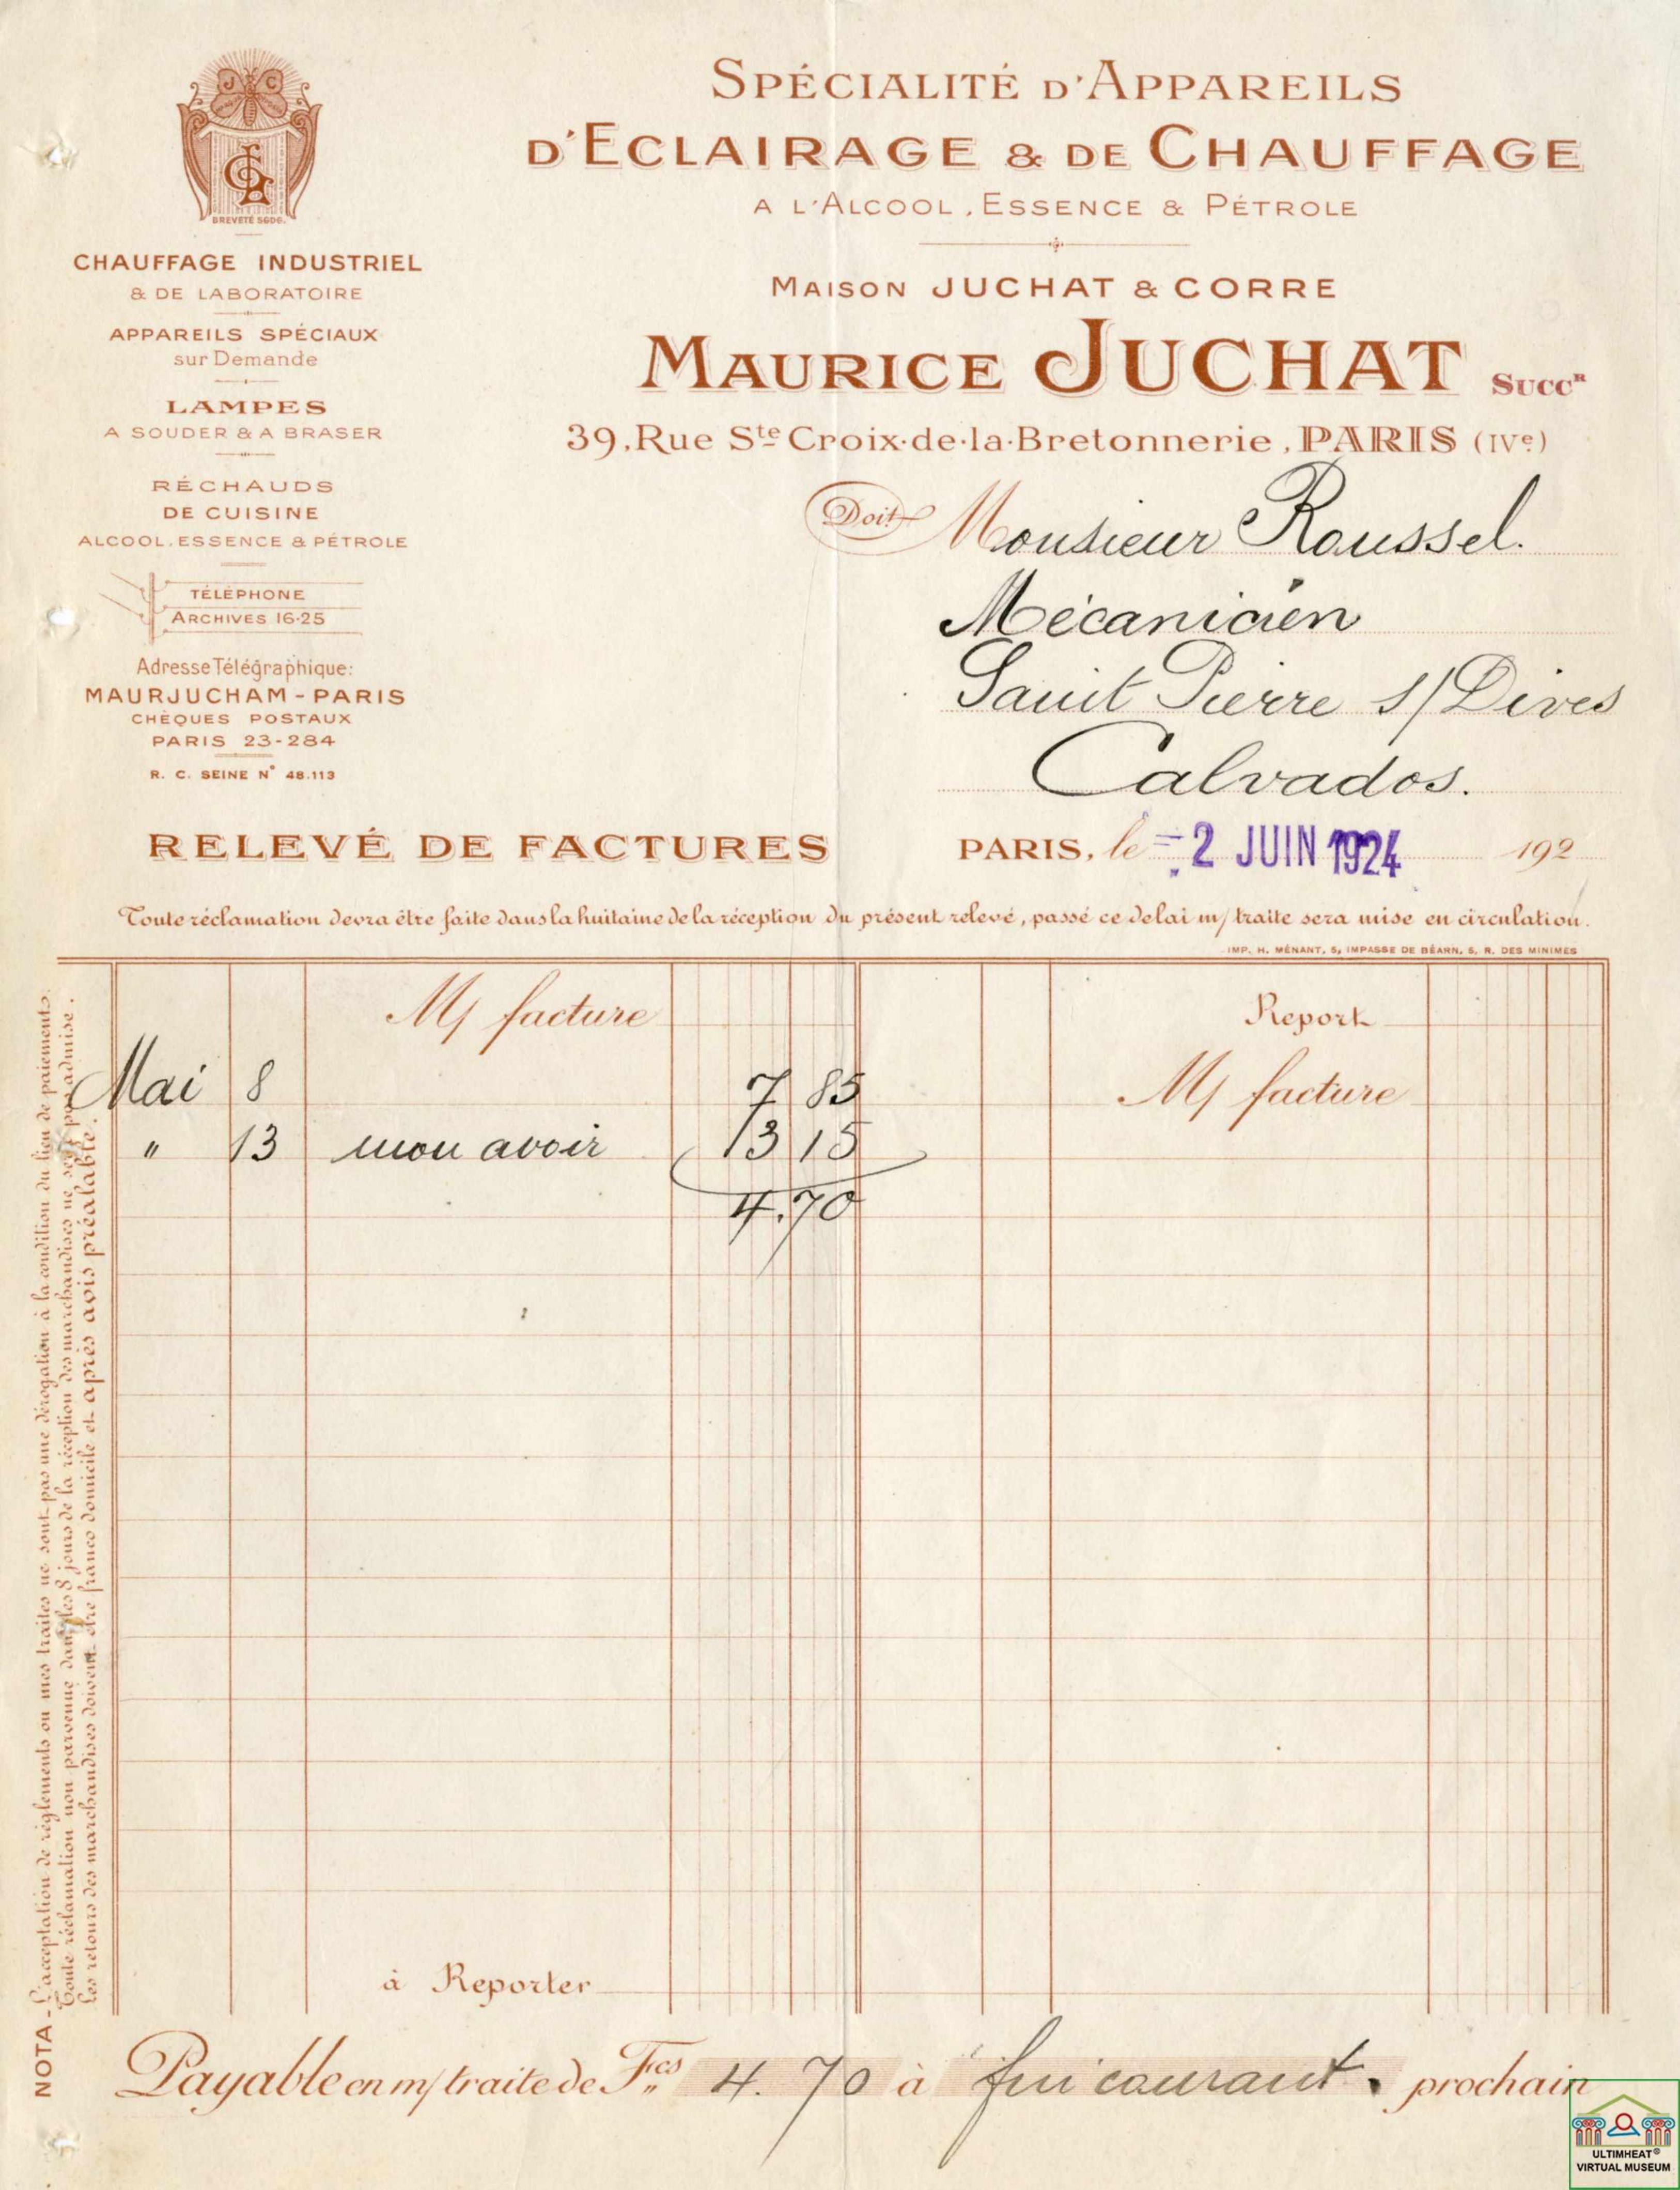 SPÉCIALITÉ D'APPAREILS
D'ECLAIRAGE & DE CHAUFFAGE
A L'ALCOOL, ESSENCE & PÉTROLE
MAISON JUCHAT & CORRE
MAURICE JUCHAT SUCCR
39, Rue Ste Croix-de-la-Bretonnerie, PARIS (IVe)
J C
BREVETÉ SGDG.
CHAUFFAGE INDUSTRIEL
& DE LABORATOIRE
APPAREILS SPÉCIAUX
sur Demande
LAMPES
A SOUDER & A BRASER
RÉCHAUDS
DE CUISINE
ALCOOL, ESSENCE & PÉTROLE
TÉLÉPHONE
ARCHIVES 16-25
Adresse Télégraphique:
MAURJUCHAM - PARIS
CHÈQUES POSTAUX
PARIS 23-284
R. C. SEINE N° 48.113
Doit Monsieur Roussel.
Mécanicien
Saint Pierre s/ Dives
Calvados.
RELEVÉ DE FACTURES
PARIS, le - 2 JUIN 1924 192
Toute réclamation devra être faite dans la huitaine de la réception du présent relevé, passé ce delai m/ traite sera mise en circulation.
IMP. H. MÉNANT, 5, IMPASSE DE BÉARN, 5, R. DES MINIMES
M/ facture
Report
Mai 8 7 85
M/ facture
" 13 mon avoir 13 15
4.70
à Reporter
Payable en m/ traite de Fcs 4.70 à fin courant. prochain
NOTA - L'acceptation de règlements ou mes traites ne sont pas une dérogation à la condition du lieu de paiements.
Toute réclamation non parvenue dans les 8 jours de la réception des marchandises ne sera pas admise.
Les retours des marchandises doivent être franco domicile et après avis préalable.
ULTIMHEAT®
VIRTUAL MUSEUM